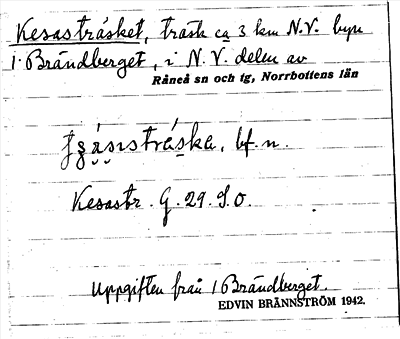 Kesasträsket, träsk ca 3 km N.V. byn
1 Brändberget, i N.V. delen av
Råneå sn och tg, Norrbottens län
bf. n.
Kesastr. G. 29. S.O.
Uppgiften från 1 Brändberget.
EDVIN BRÄNNSTRÖM 1942.